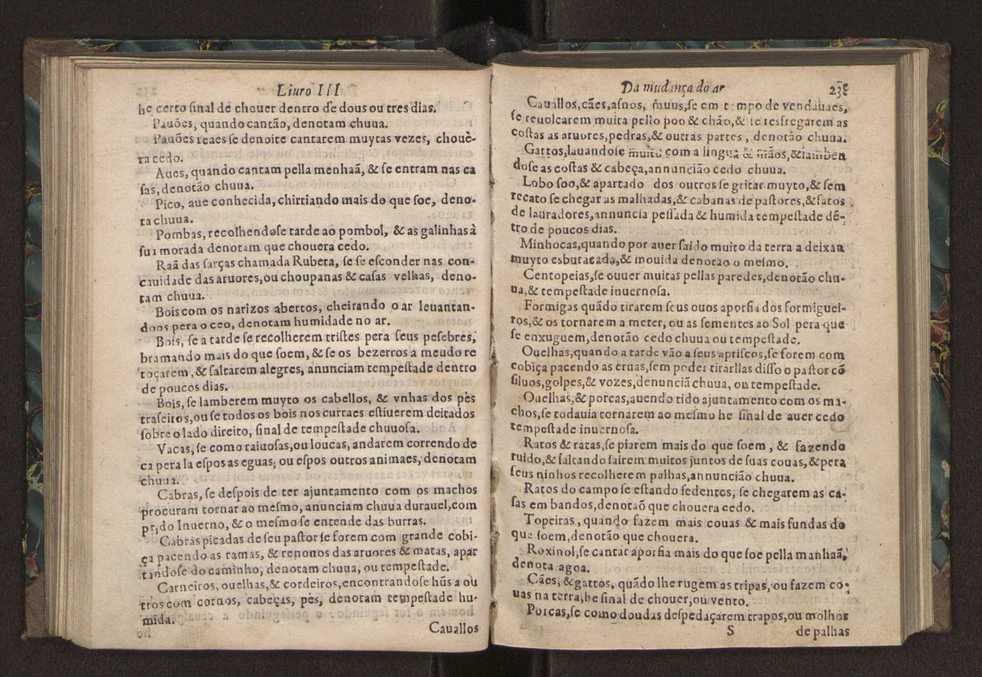 Liuro III
he certo sinal de chouer dentro de dous ou tres dias.
Pauões, quando cantão, denotam chuua.
Pauões reaes se denoite cantarem muytas vezes, chouè-
ra cedo.
Aues, quando cantam pella menhaã, & se entram nas ca
sas, denotão chuua.
Pico, aue conhecida, chirriando mais do que soe, deno-
ta chuua.
Pombas, recolhendose tarde ao pombol, & as galinhas à
sua morada denotam que chouera cedo.
Raã das sarças chamada Rubeta, se se esconder nas con-
cauidade das aruores, ou choupanas & casas velhas, deno-
tam chuua.
Bois com os narizos abertos, cheirando o ar leuantan-
doos pera o ceo, denotam humidade no ar.
Bois, se a tarde se recolherem tristes pera seus pesebres,
bramando mais do que soem, & se os bezerros a meudo re
toçarem, & saltarem alegres, anunciam tempestade dentro
de poucos dias.
Bois, se lamberem muyto os cabellos, & vnhas dos pès
traseiros, ou se todos os bois nos curraes estiuerem deitados
sobre o lado direito, sinal de tempestade chuuosa.
Vacas, se como raiuosas, ou loucas, andarem correndo de
ca pera la espos as eguas, ou espos outros animaes, denotam
chuua.
Cabras, se despois de ter ajuntamento com os machos
procuram tornar ao mesmo, anunciam chuua durauel, com
prido Inuerno, & o mesmo se entende das burras.
Cabras picadas de seu pastor se forem com grande cobi-
ça pacendo as ramas, & renouos das aruores & matas, apar
tandose do caminho, denotam chuua, ou tempestade.
Carneiros, ouelhas, & cordeiros, encontrandose hũs a ou
tros com cornos, cabeças, pès, denotam tempestade hu-
mida.
Cauallos
Da mudança do ar
Cauallos, cães, asnos, muus, se em tempo de vendauaes,
se reuolcarem muita pello poo & chão, & se resfregarem as
costas as aruores, pedras, & outras partes, denotão chuua.
Gattos, lauandose muito com a lingua & mãos, & lamben
dose as costas & cabeça, annuncião cedo chuua.
Lobo soo, & apartado dos outros se gritar muyto, & sem
recato se chegar as malhadas, & cabanas de pastores, & fatos
de lauradores, annuncia pesada & humida tempestade dẽ-
tro de poucos dias.
Minhocas, quando por auer saido muito da terra a deixan
muyto esburacada, & mouida denotão o mesmo.
Centopeias, se ouuer muitas pellas paredes, denotão chu-
ua, & tempestade inuernosa.
Formigas quãdo tirarem seus ouos aporfia dos formiguei-
ros, & os tornarem a meter, ou as sementes ao Sol pera que
se enxuguem, denotão cedo chuua ou tempestade.
Ouelhas, quando a tarde vão a seus apriscos, se forem com
cobiça pacendo as eruas, sem poder tirarllas disso o pastor cõ
siluos, golpes, & vozes, denunciã chuua, ou tempestade.
Ouelhas, & porcas, auendo tido ajuntamento com os ma-
chos, se todauia tornarem ao mesmo he sinal de auer cedo
tempestade inuernosa.
Ratos & ratas, se piarem mais do que soem, & fazendo
ruido, & saltando sairem muitos juntos de suas couas, & pera
seus ninhos recolherem palhas, annuncião chuua.
Ratos do campo se estando sedentos, se chegarem as ca-
sas em bandos, denotaõ que chouera cedo.
Topeiras, quando fazem mais couas & mais fundas do
que soem, denotão que chouera.
Roxinol, se cantar aporfia mais do que soe pella manhaã,
denota agoa.
Cães, & gattos, quãdo lhe rugem as tripas, ou fazem co-
uas na terra, he sinal de chouer, ou vento.
Porcas, se como doudas despedaçarem trapos, ou molhos
S de palhas